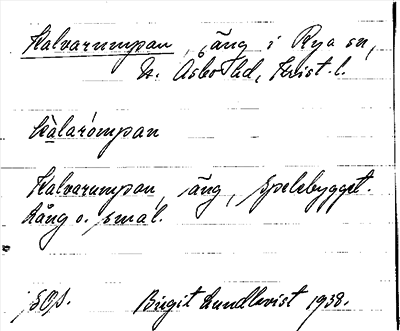 Kalvarumpan, äng i Rya sn,
N. Åsbo hd, Krist. l.
Kalarómpan
Kalvarumpan, äng, Spelebygget.
Lång o. smal.
Birgit Lundkvist 1938.